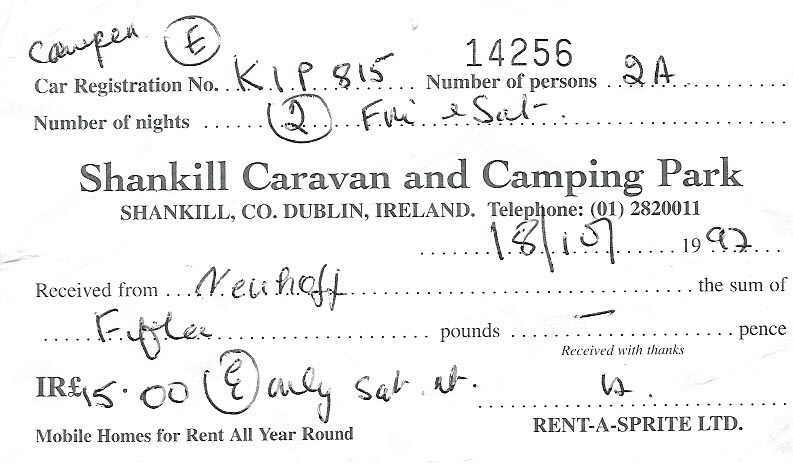 Camper E
14256
Car Registration No. KIP 815 Number of persons 2A
Number of nights 2 Fri & Sat
Shankill Caravan and Camping Park
SHANKILL, CO. DUBLIN, IRELAND. Telephone: (01) 2820011
18/10/ 1997
Received from Neuhoff the sum of
Fifteen pounds — pence
Received with thanks
IR£15.00 E only Sat. nt.
Mobile Homes for Rent All Year Round RENT-A-SPRITE LTD.